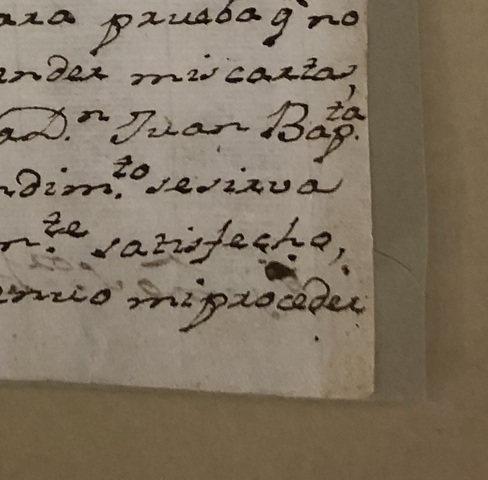 ara prueba q^e no
ender mis cartas,
a D.^n Juan Bap.^ta
ndim.^to se sirva
m.^te satisfecho,
mi proceder